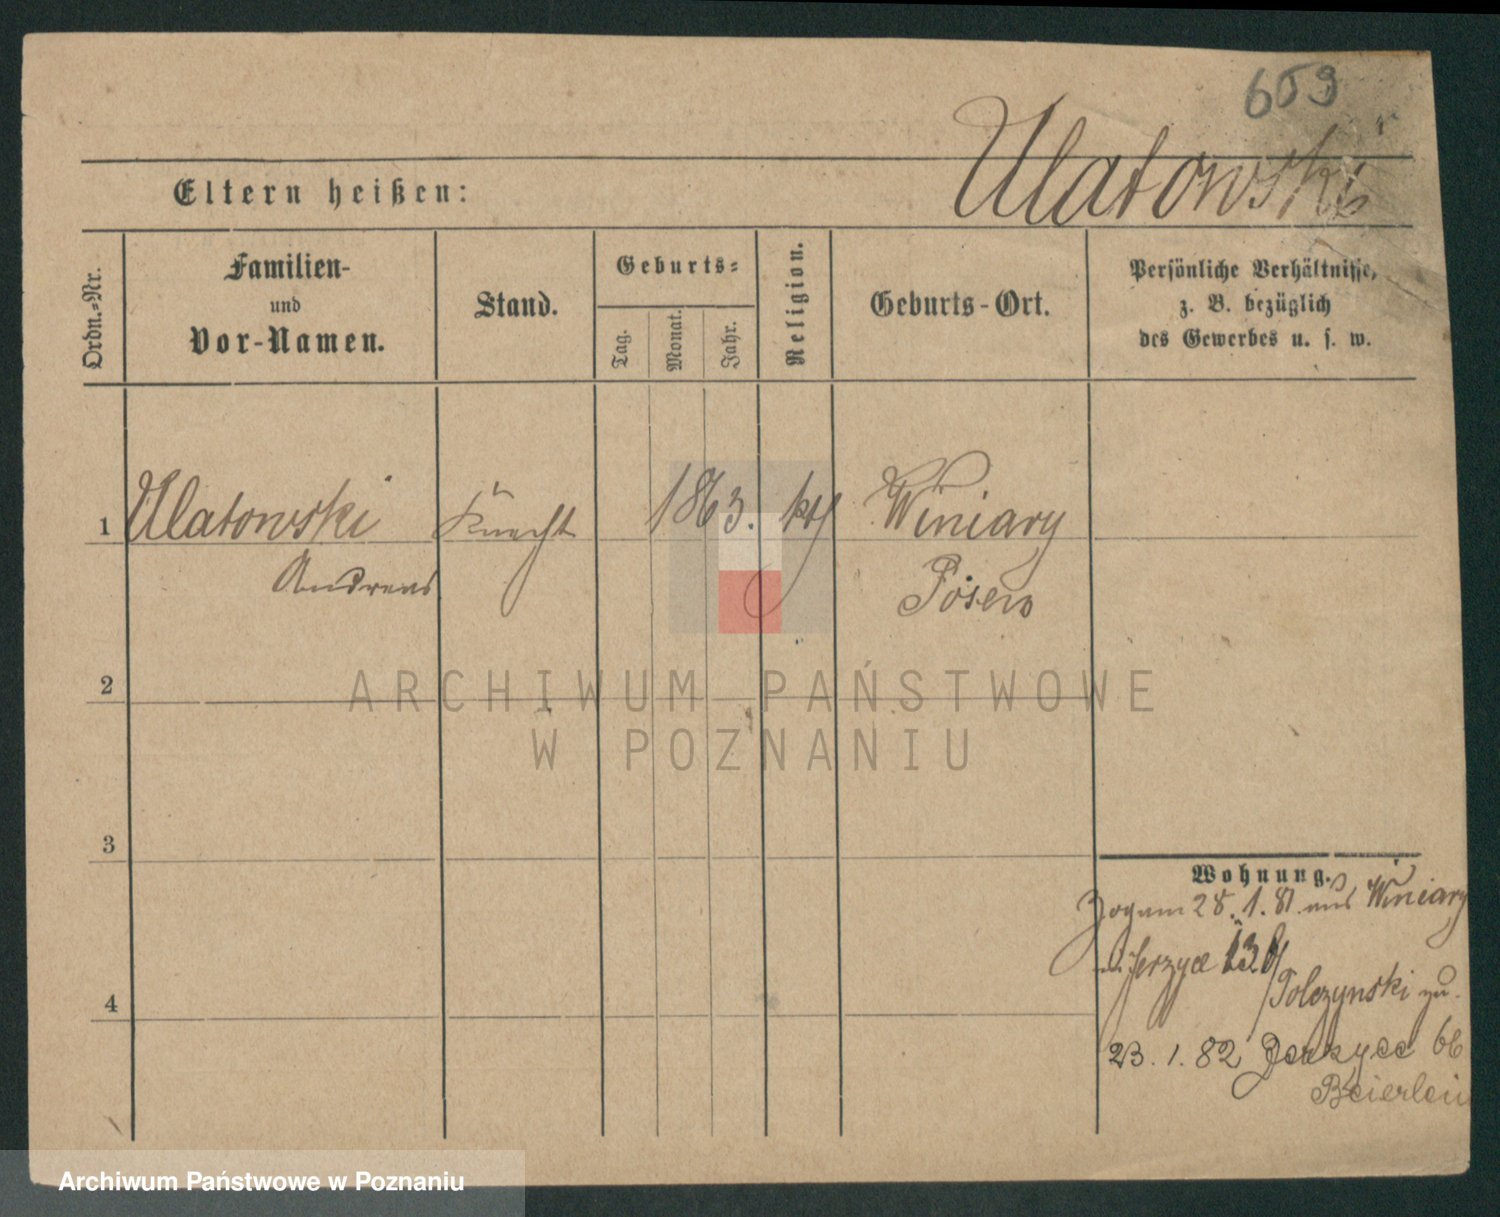 659
Ulatowski
Eltern heißen:
Ordn.-Nr.
Familien-
und
Vor-Namen.
Stand.
Geburts-
Tag.
Monat.
Jahr.
Religion.
Geburts-Ort.
Persönliche Verhältnisse,
z. B. bezüglich
des Gewerbes u. s. w.
1 Ulatowski Knecht 1863. kth Winiary
Andreas Posen
2
ARCHIWUM PAŃSTWOWE
W POZNANIU
3
4
Wohnung.
Zog am 28.1.81. aus Winiary
n. Jerzyce 13
Tolczynski zu.
23.1.82 Jerzyce 66
Beierlein
Archiwum Państwowe w Poznaniu